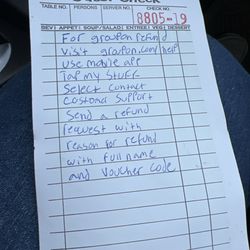 Guest Check
TABLE NO. PERSONS SERVER NO. CHECK NO.
8805-19
BEV | APPET | SOUP/SALAD | ENTREE | VEG | DESSERT
For groupon refund
Visit groupon.com/help
Use mobile app
Tap my stuff
Select contact
Customer support
Send a refund
request with
reason for refund
with full name
and voucher code